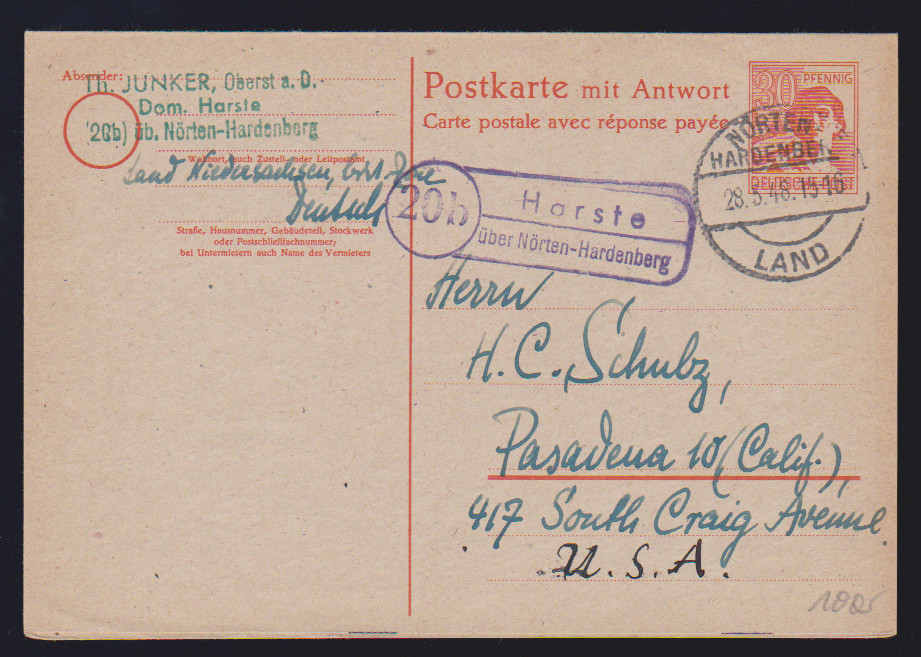 Absender:
Th. JUNKER, Oberst a. D.
Dom. Harste
(20b) üb. Nörten-Hardenberg
Wohnort, auch Zustell- oder Leitpostamt
Land Niedersachsen, brit. Zone
Deutschl
Straße, Hausnummer, Gebäudeteil, Stockwerk
oder Postschließfachnummer;
bei Untermietern auch Name des Vermieters
Postkarte mit Antwort
Carte postale avec réponse payée
30 PFENNIG
DEUTSCHE POST
NÖRTEN-
HARDENBERG
28.5.48.15-16
LAND
20b
Harste
über Nörten-Hardenberg
Herrn
H. C. Schulz,
Pasadena 10 (Calif.),
417 South Craig Avenue
U. S. A.